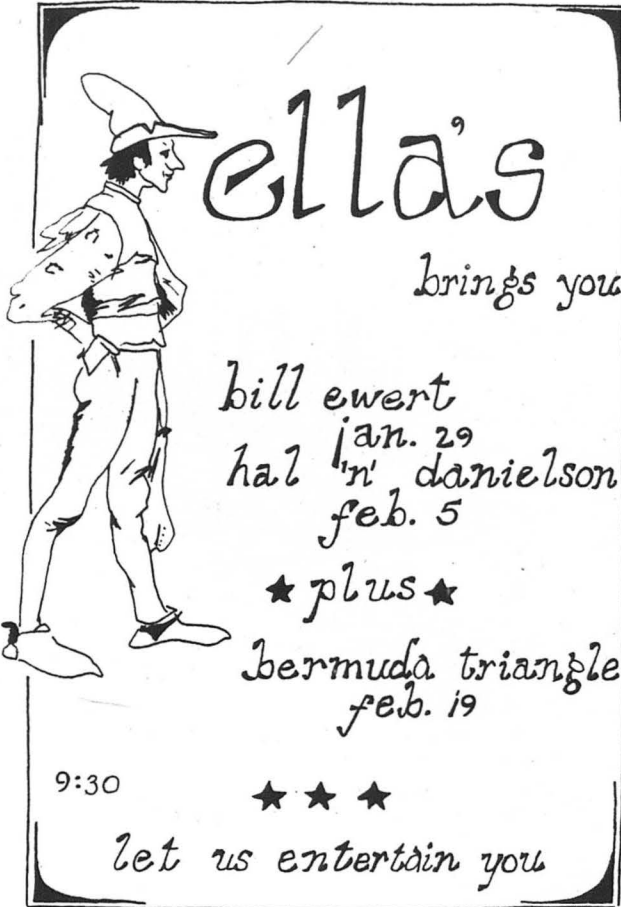 ella's
brings you
bill ewert
jan. 29
hal 'n' danielson
feb. 5
★ plus ★
bermuda triangle
feb. 19
9:30
★ ★ ★
let us entertain you